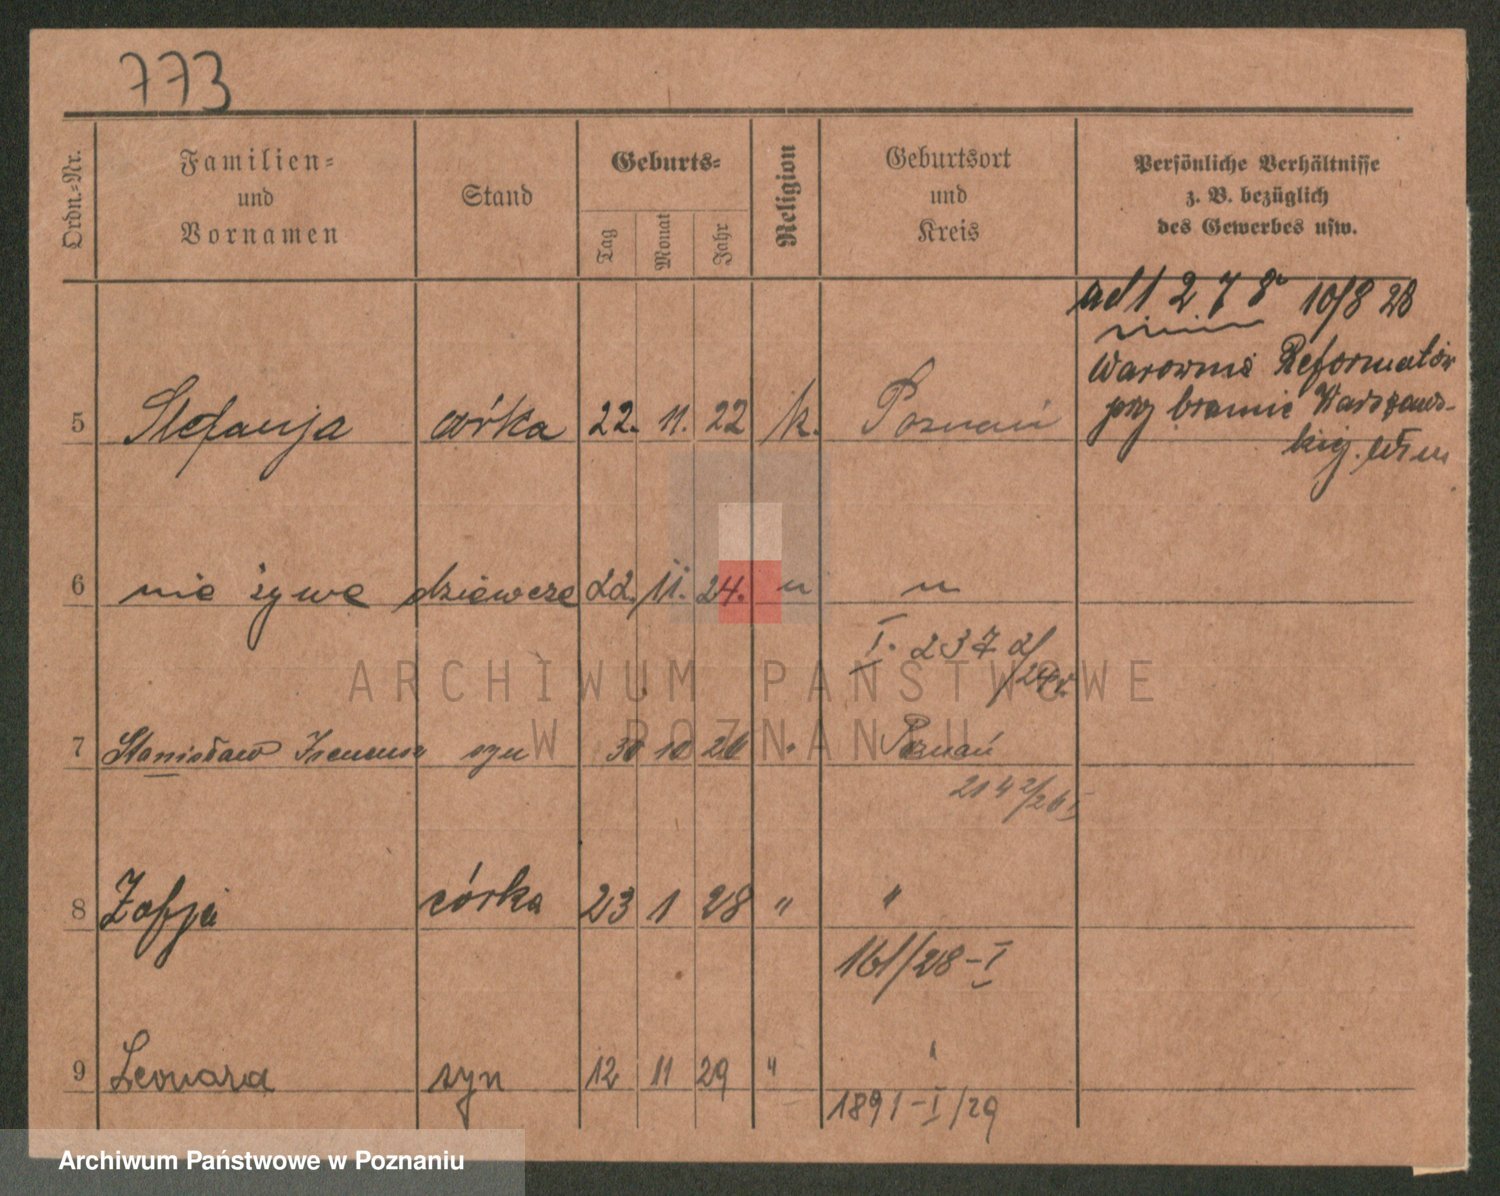 773
Ordn.-Nr.
Familien-
und
Vornamen
Stand
Geburts-
Tag
Monat
Jahr
Religion
Geburtsort
und
Kreis
Persönliche Verhältnisse
z. B. bezüglich
des Gewerbes usw.
ad 1 2 7 8 10/8 28
Warownia Reformatów
przy bramie Warszaws-
kiej.
5 Stefanja córka 22. 11. 22 k. Poznań
6 nie żywe dziewczę 22. 11. 24. " "
I. 237 2/24r.
7 Stanisław Ireneusz syn 30 10 26 " Poznań
214 2/26 I
8 Zofja córka 23 1 28 " "
161/28-I
9 Leonard syn 12 11 29 " "
1891-I/29
ARCHIWUM PAŃSTWOWE
W POZNANIU
Archiwum Państwowe w Poznaniu